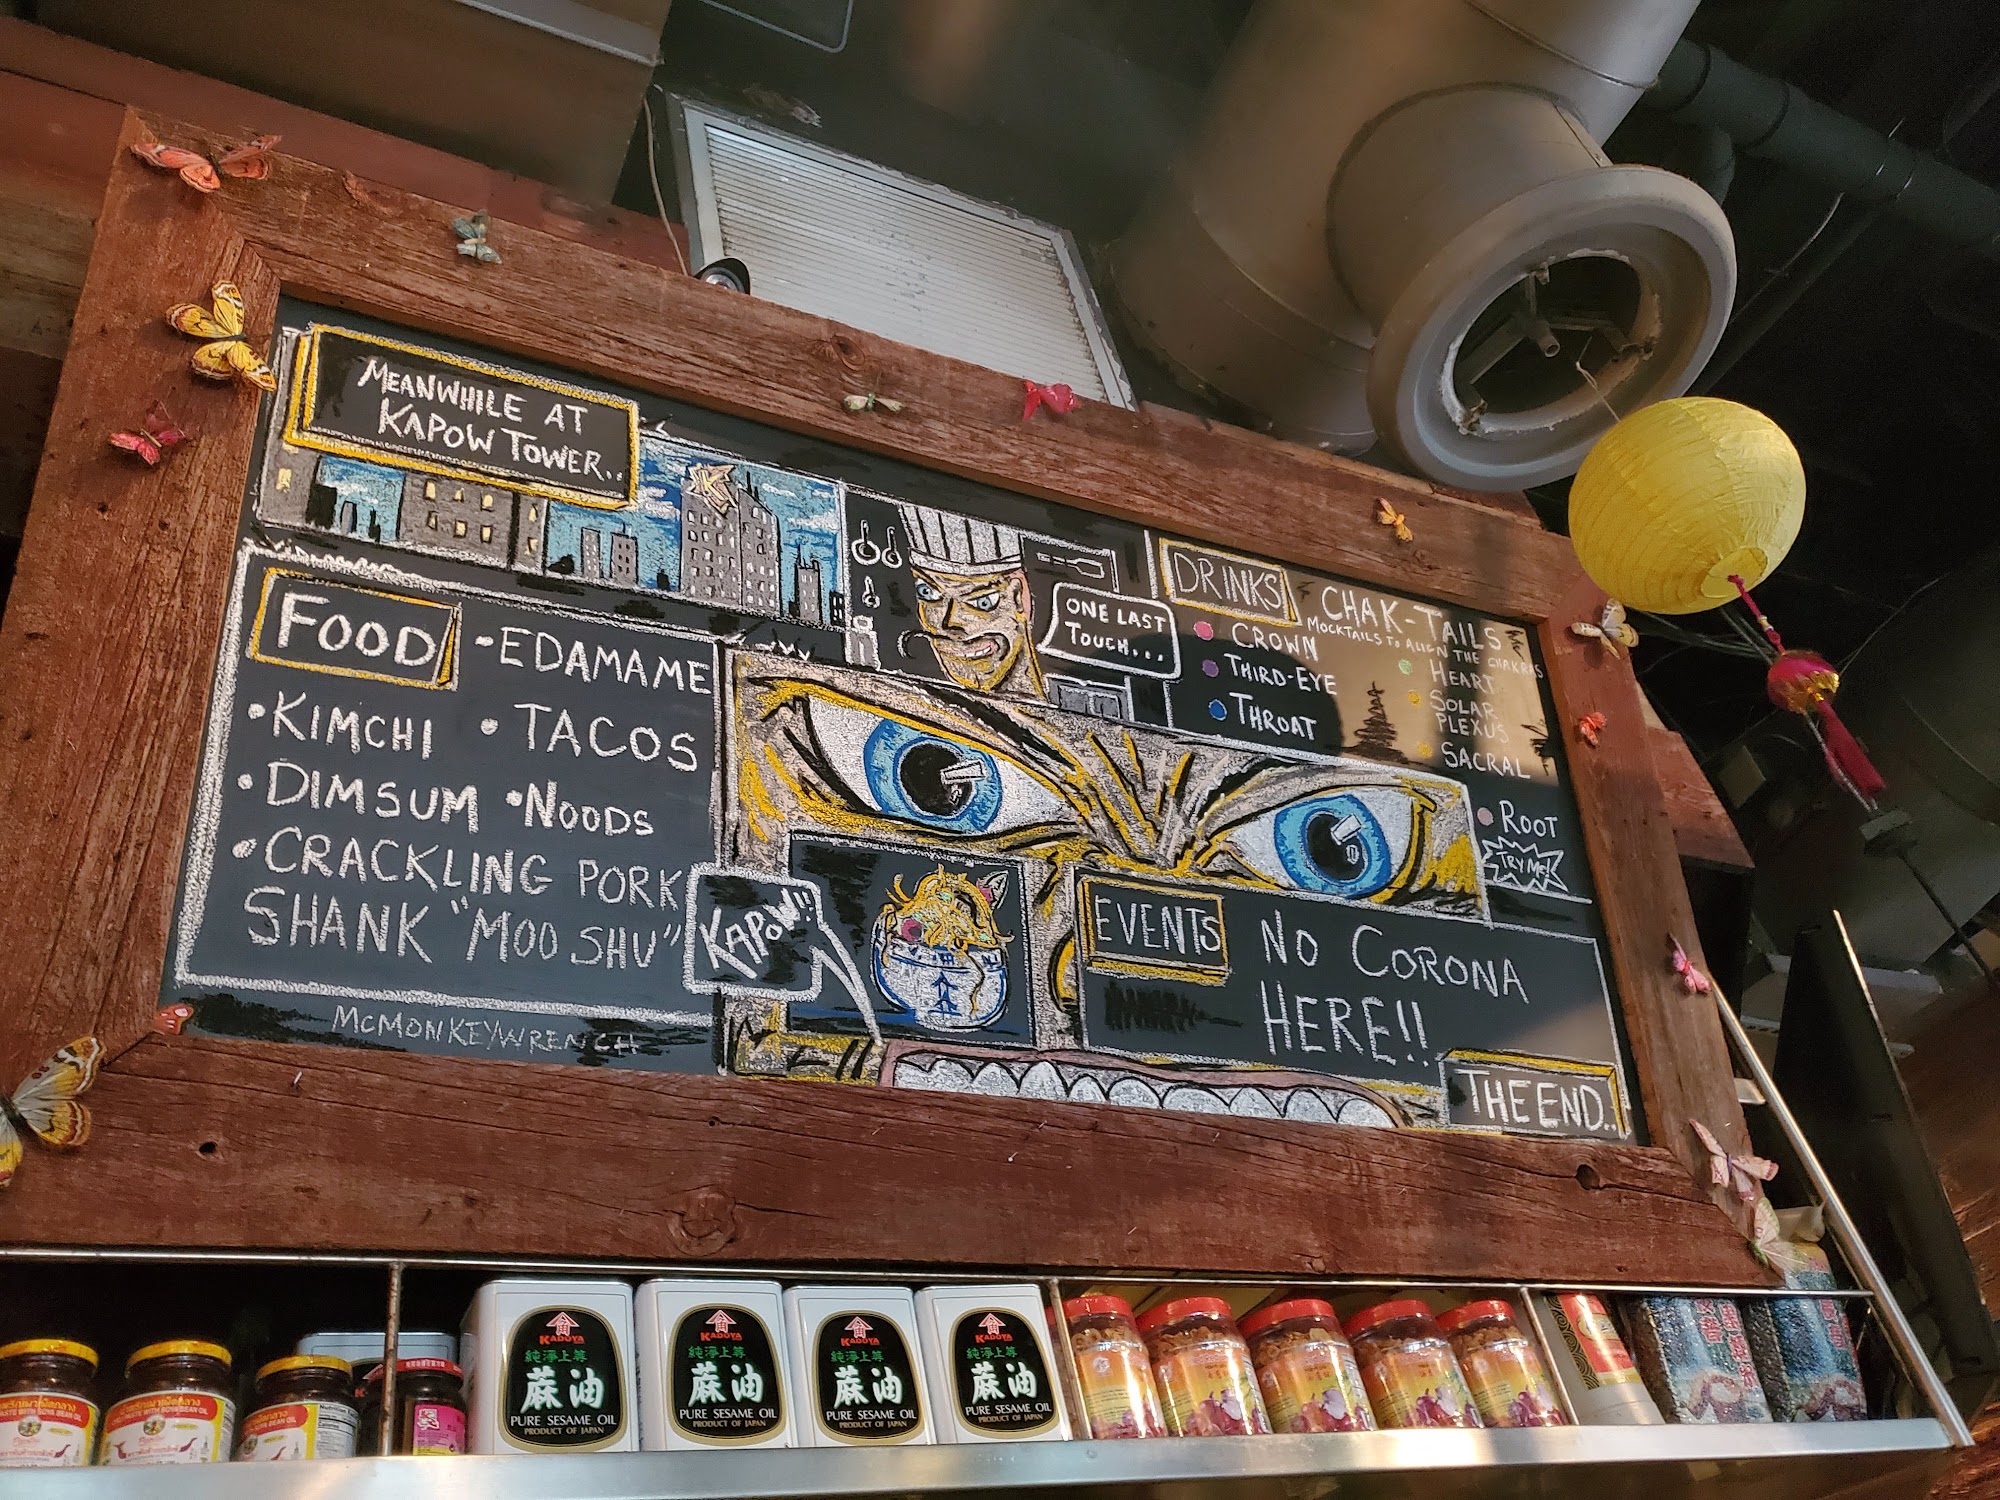 MEANWHILE AT
KAPOW TOWER..
K
FOOD
•EDAMAME
•KIMCHI
•TACOS
•DIMSUM
•NOODS
•CRACKLING PORK
SHANK "MOO SHU"
McMONKEYWRENCH
ONE LAST
TOUCH....
KAPOW!!
DRINKS
CHAK-TAILS
MOCKTAILS TO ALIGN THE CHAKRAS
CROWN
THIRD-EYE
THROAT
HEART
SOLAR
PLEXUS
SACRAL
ROOT
TRY ME!
EVENTS
NO CORONA
HERE!!
THE END..
KADOYA
純淨上等
蔴油
PURE SESAME OIL
PRODUCT OF JAPAN
KADOYA
純淨上等
蔴油
PURE SESAME OIL
PRODUCT OF JAPAN
KADOYA
純淨上等
蔴油
PURE SESAME OIL
PRODUCT OF JAPAN
KADOYA
純淨上等
蔴油
PURE SESAME OIL
PRODUCT OF JAPAN